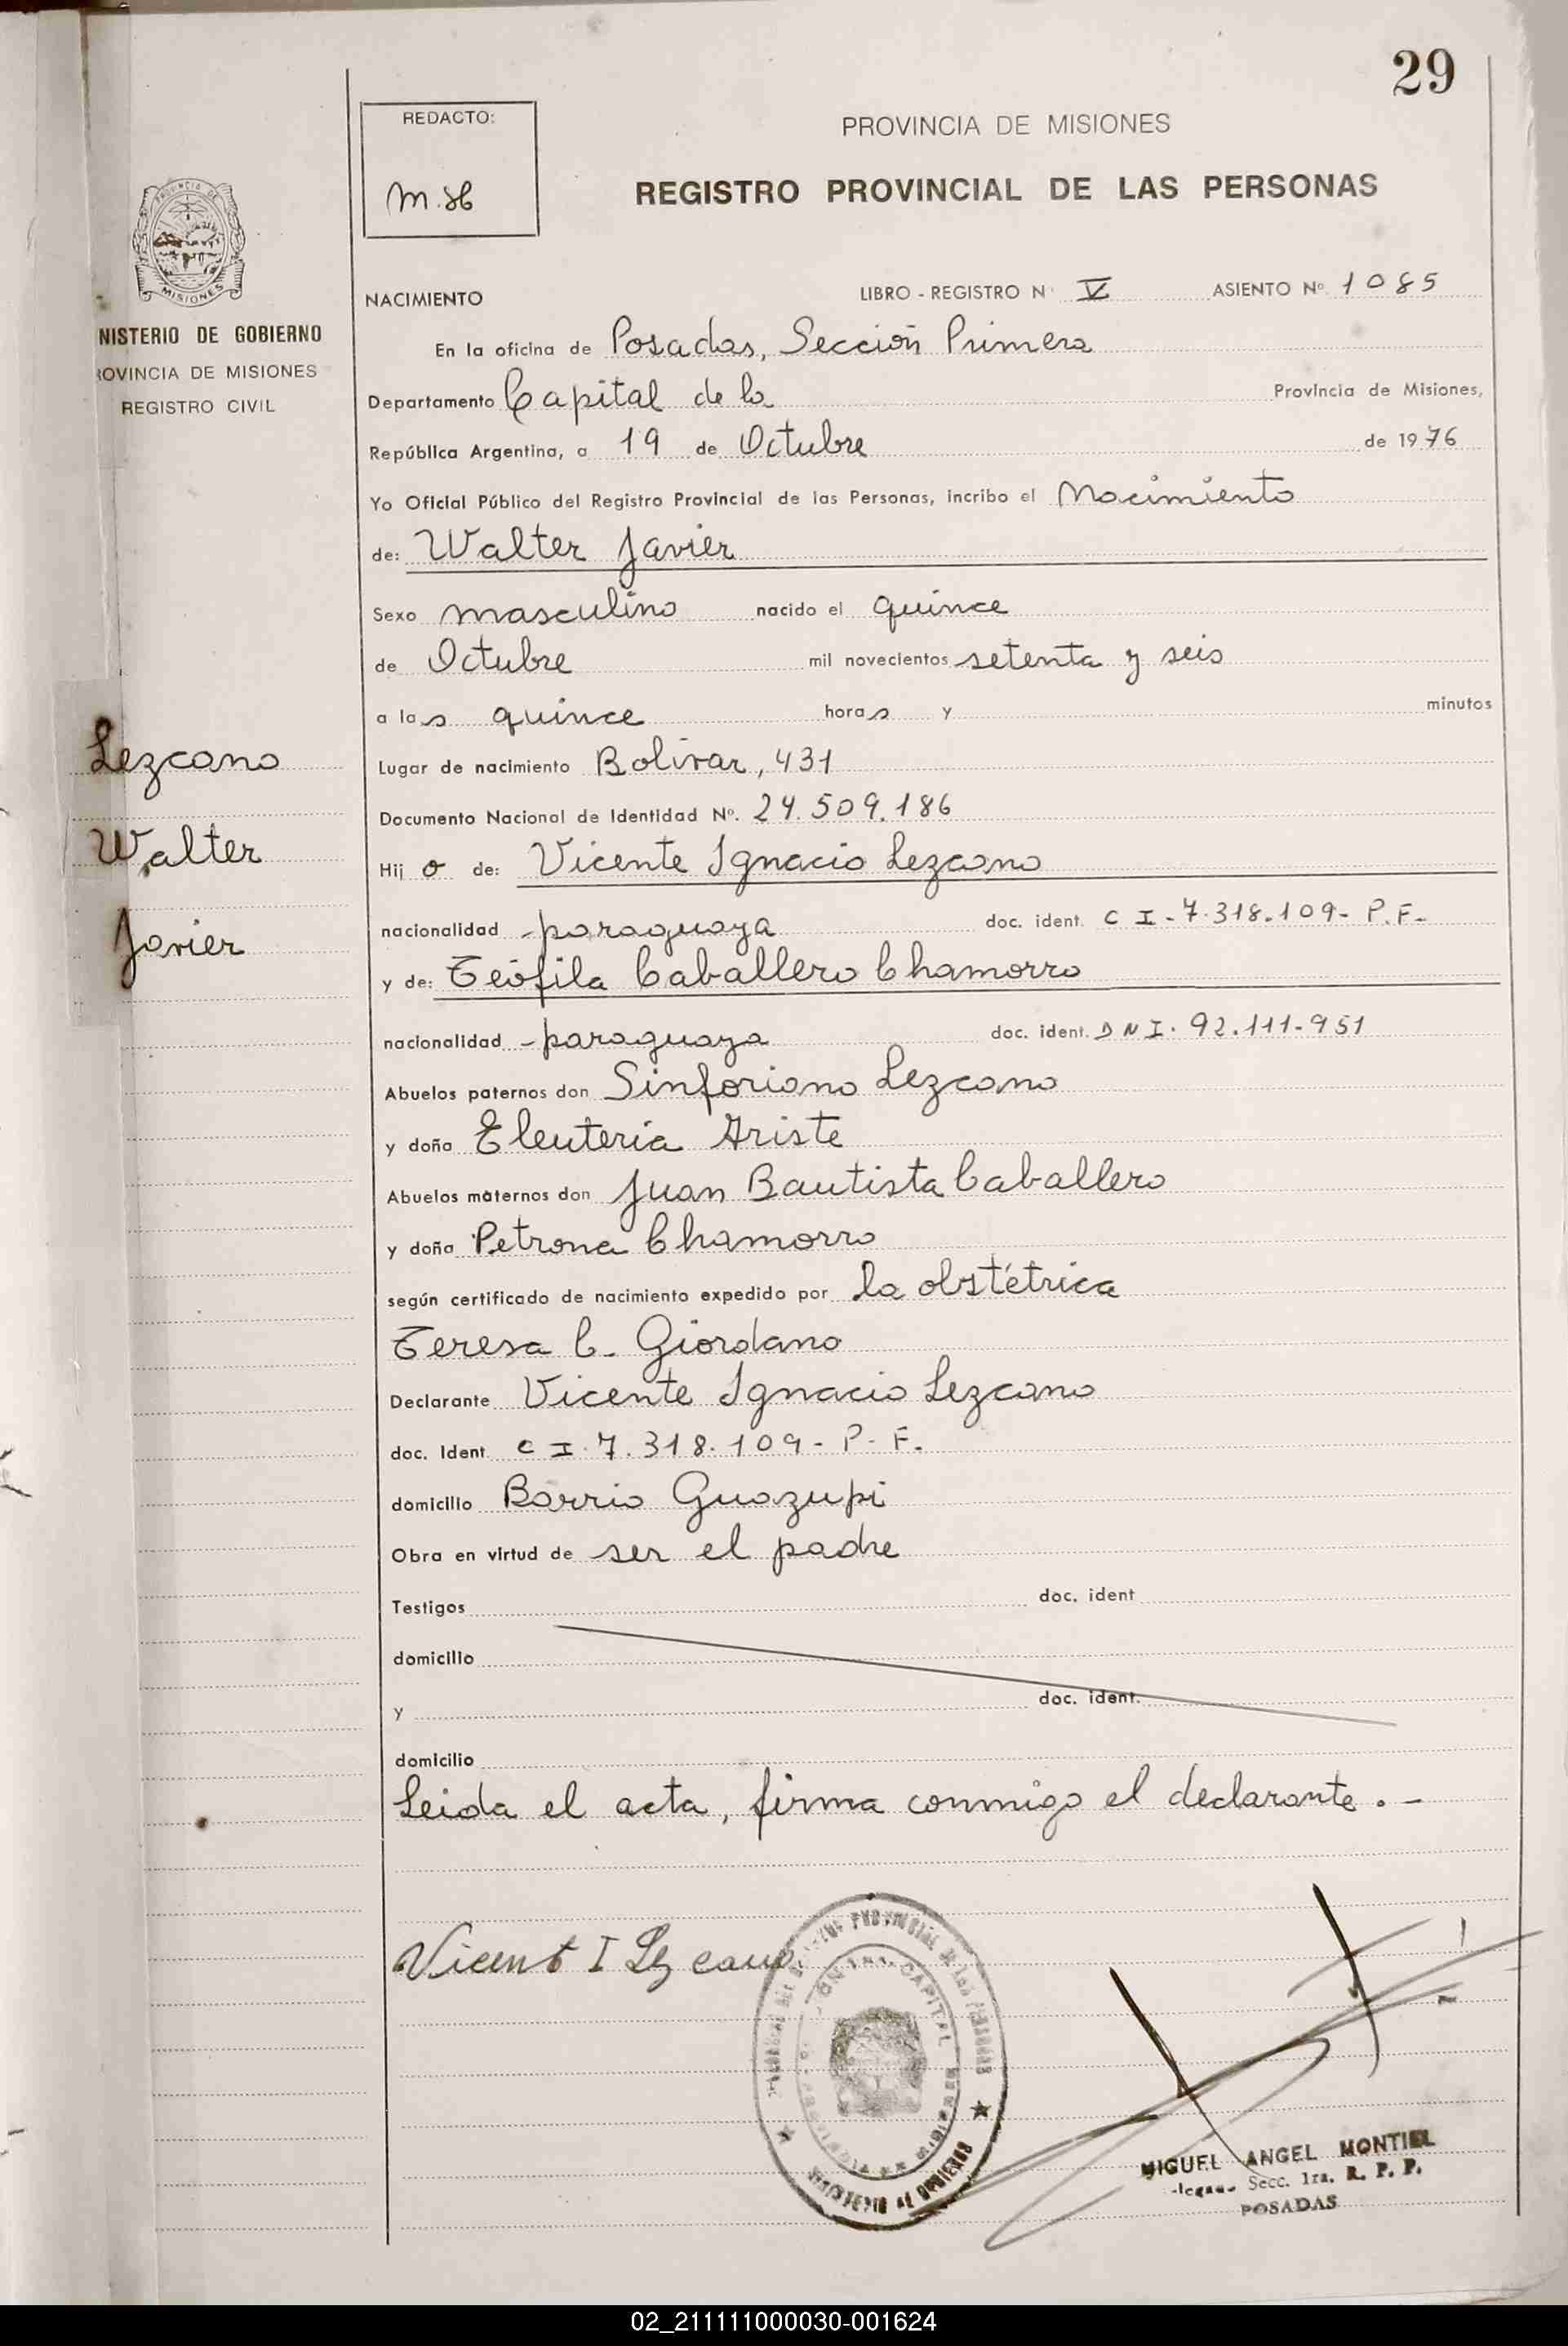 29
REDACTO:
PROVINCIA DE MISIONES
REGISTRO PROVINCIAL DE LAS PERSONAS
PROVINCIA DE
MISIONES
NISTERIO DE GOBIERNO
ROVINCIA DE MISIONES
REGISTRO CIVIL
NACIMIENTO LIBRO - REGISTRO Nº V ASIENTO Nº 1085
En la oficina de Posadas, Sección Primera
Departamento Capital de la Provincia de Misiones,
República Argentina, a 19 de Octubre de 1976
Yo Oficial Público del Registro Provincial de las Personas, incribo el Nacimiento
de: Walter Javier
Sexo masculino nacido el quince
de Octubre mil novecientos setenta y seis
a las quince horas y minutos
Lezcano
Walter
Javier
Lugar de nacimiento Bolívar, 431
Documento Nacional de Identidad Nº. 24.509.186
Hijo de: Vicente Ignacio Lezcano
nacionalidad paraguaya doc. ident. C I - 7.318.109 - P.F.
y de: Teófila Caballero Chamorro
nacionalidad paraguaya doc. ident. D N I. 92.111.951
Abuelos paternos don Sinforiano Lezcano
y doña Eleuteria Ariste
Abuelos maternos don Juan Bautista Caballero
y doña Petrona Chamorro
según certificado de nacimiento expedido por la obstétrica
Teresa C. Giordano
Declarante Vicente Ignacio Lezcano
doc. Ident C I. 7.318.109 - P. F.
domicilio Barrio Guazupi
Obra en virtud de ser el padre
Testigos doc. ident
domicilio
y doc. ident.
domicilio
Leida el acta, firma conmigo el declarante. -
Vicent I Lezcano
CAPITAL
MIGUEL ANGEL MONTIEL
Secc. 1ra. R. P. P.
POSADAS
02_211111000030-001624